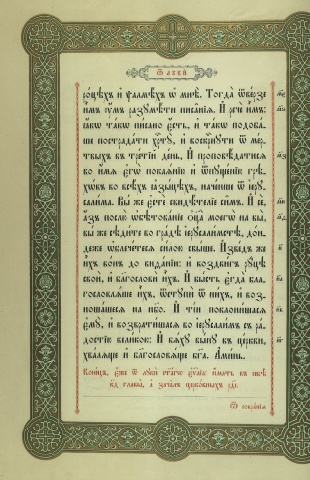 Ѿ лꙋкѝ
ро́цѣхъ и҆ ѱалмѣ́хъ ѡ҆ мнѣ̀. Тогда̀ ѿве́рзе
и҆̀мъ ᲂу҆́мъ разꙋмѣ́ти писа̑нїѧ. И҆ речѐ и҆̀мъ:
ꙗ҆́кѡ та́кѡ пи́сано є҆́сть, и҆ та́кѡ подоба́-
ше пострада́ти хрⷭ҇тꙋ̀, и҆ воскрⷭ҇нꙋти ѿ ме́р-
твыхъ въ тре́тїй де́нь, И҆ проповѣ́датисѧ
во и҆́мѧ є҆гѡ̀ покаѧ́нїю и҆ ѿпꙋще́нїю грѣ-
хѡ́въ во всѣ́хъ ꙗ҆зы́цѣхъ, наче́нше ѿ і҆ерꙋ-
сали́ма. Вы́ же є҆стѐ свидѣ́телїе си̑мъ. И҆ сѐ,
а҆́зъ послю̀ ѡ҆бѣтова́нїе ѻ҆ц҃а̀ моегѡ̀ на вы̀,
вы́ же сѣди́те во гра́дѣ і҆ерⷭ҇ли́мстѣ, до́н-
деже ѡ҆блече́тесѧ си́лою свы́ше. И҆зве́дъ же
и҆̀хъ во́нъ до вида́нїи: и҆ воздви́гъ рꙋ́цѣ
своѝ, и҆ благословѝ и҆̀хъ. И҆ бы́сть є҆гда̀ бла-
гословлѧ́ше и҆̀хъ, ѿстꙋпѝ ѿ ни́хъ, и҆ воз-
ноша́шесѧ на нб҃о. И҆ ті́и поклони́шасѧ
є҆мꙋ̀, и҆ возврати́шасѧ во і҆ерꙋсали́мъ съ ра́-
достїю вели́кою: И҆ бѧ́хꙋ вы́нꙋ въ це́ркви,
хва́лѧще и҆ благословѧ́ще бг҃а. А҆ми́нь.
Коне́цъ, є҆́же ѿ лꙋкѝ ст҃а́гѡ є҆ѵⷢ҇лїѧ: и҆́мать въ себѣ̀
к҃д главы̑, а҆ зача́лъ церко́вныхъ рд҃і.
Ѿ